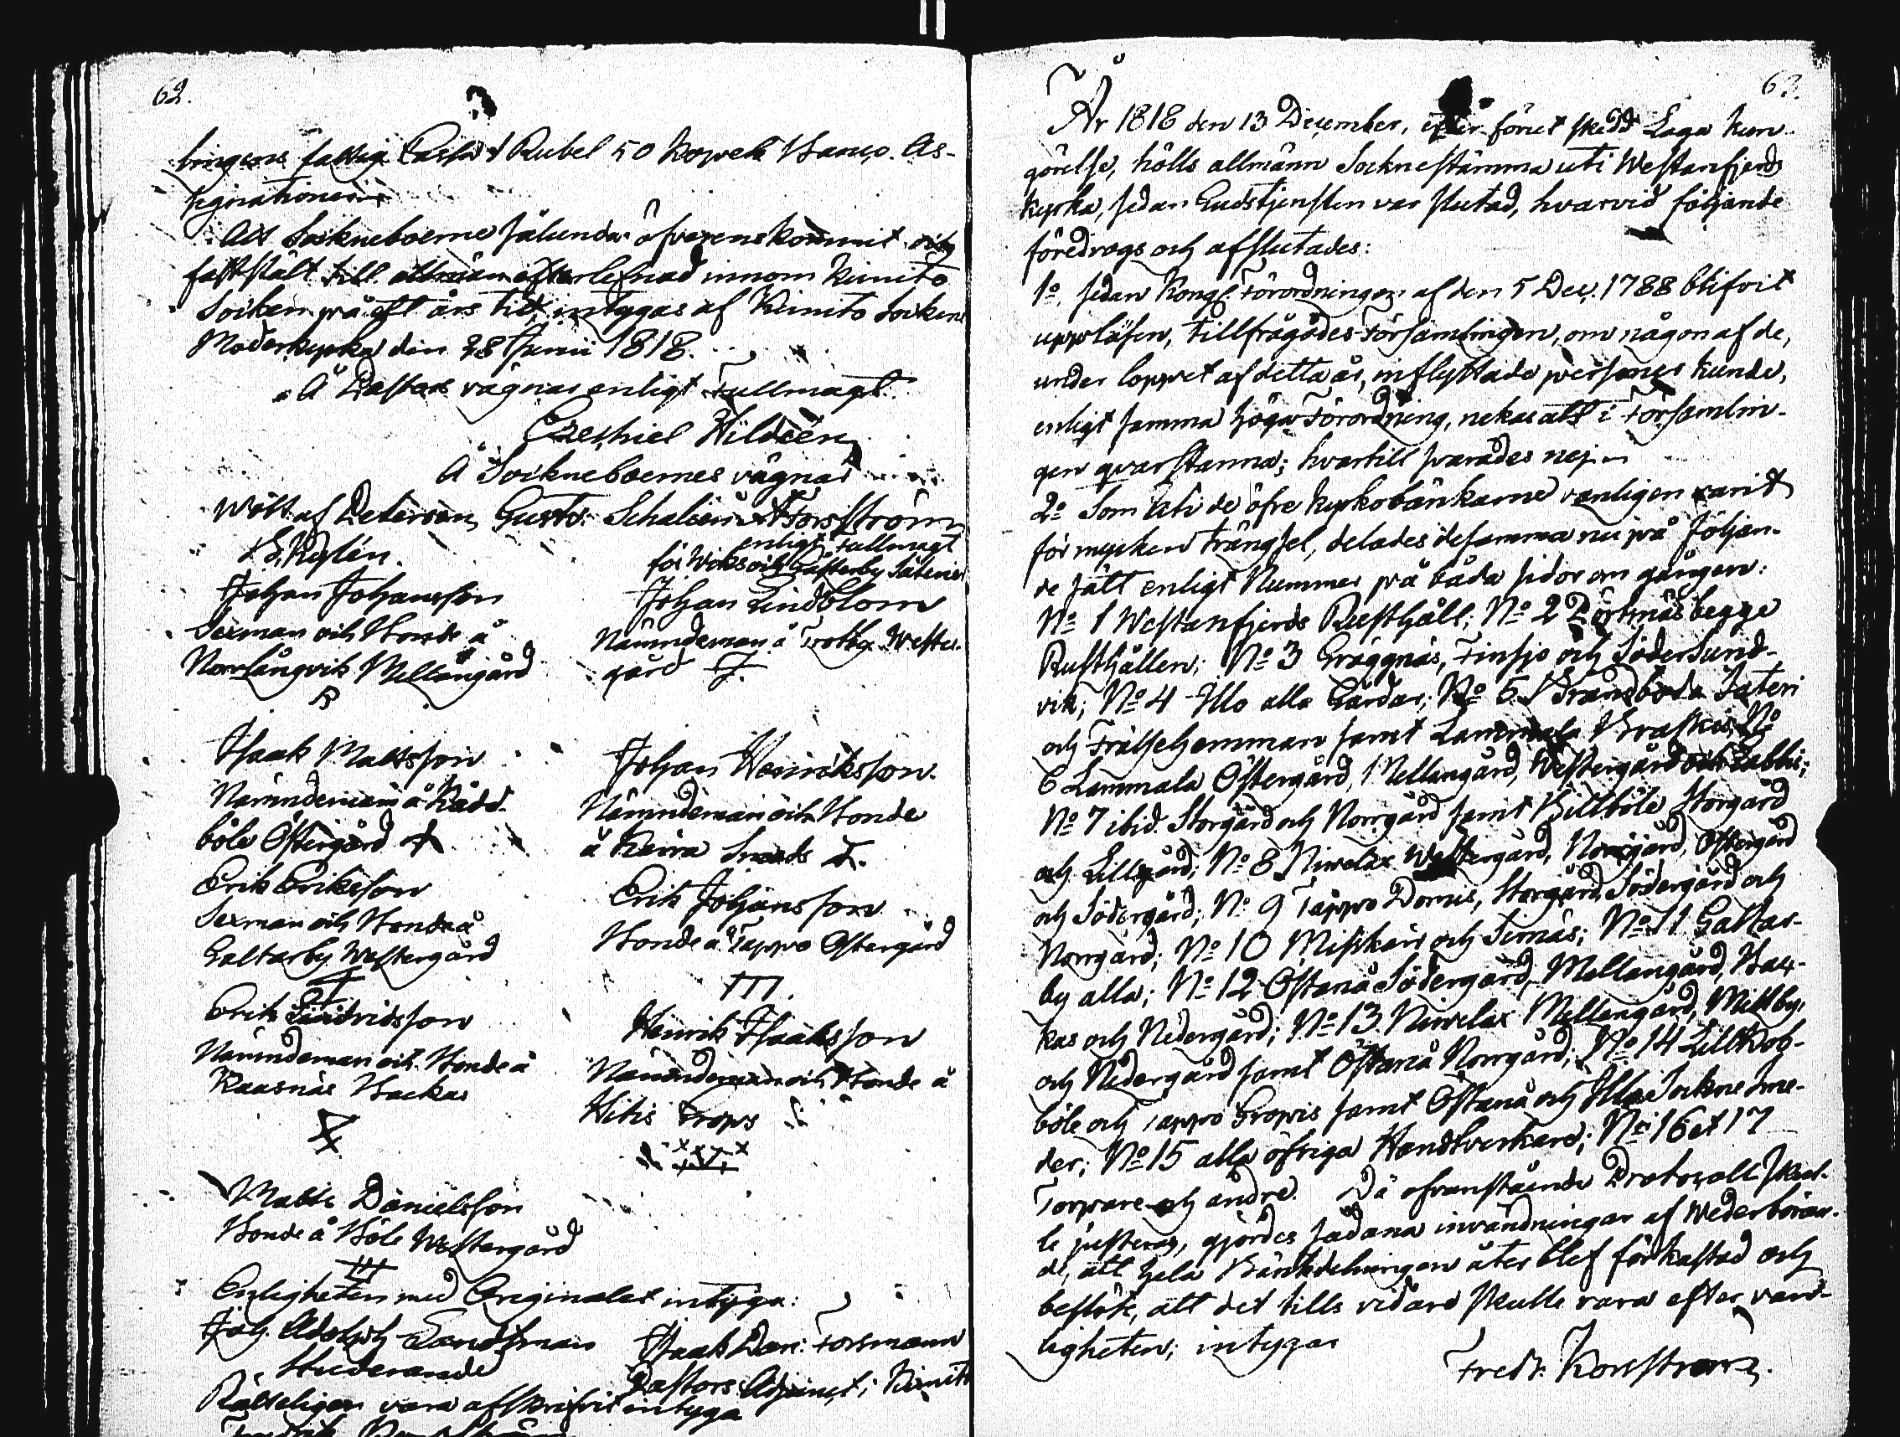 62.
bingens fattig Cassa 1 Rubel 50 Kopek Banco. As-
signationer.
Att Sockneboerne sålunda öfverenskommit och
fastställt till allmän efterlefnad innom Kimito
Socken på ett års tid, intygas af Kimito Sockens
Moderkyrka den 28 Junii 1818.
Å Pastors vägnar enligt Fullmagt.
Ezechiel Hildeen
Å Sockneboernes vägnar
Wolt. af Petersen Gust: Schalien A Forsström
E. Kylén. enligt Fullmagt
för Woks och Westerby Säterier
Johan Johansson Johan Lindblom
Sexman och Bonde å Nämndeman å Trotby Wester
Norrlångvik Mellangård gård
Isaak Mattsson Johan Henriksson.
Nämndeman å Rådd- Nämndeman och Bonde
böle Östergård å Reira
Erik Eriksson Erik Johansson
Sexman och Bonde å Bonde å Tappo Östergård
Galtarby Westergård
III.
Erik Henrik Isaksson
Nämndeman och Bonde å Nämndeman och Bonde å
Kaasnäs Backas Hitis
Matts Danielsson
Bonde å Böle Westergård
Enligheten med Originalet intyga:
Joh. Adolph Sandman Isaak Dan: Forsmann
Studerande Pastors Adjunct i Kimito
Rätteligen vara afskrifvit intyga
63.
År 1818 den 13 December, efter förut skedd Laga Kun-
görelse, hölls allmänn Socknestämma uti Westanfjerds
kyrka, sedan Gudstjensten var slutad, hvarvid följande
föredrogs och afslutades:
1o. Sedan Kongl. Förordningen af den 5 Dec. 1788 blifvit
uppläsen, tillfrågades Församlingen, om någon af de,
under loppet af detta år, inflyttade personer kunde,
enligt samma höga Förordning, nekas att i Församlin-
gen qvarstanna; hvartill svarades nej.
2o Som uti de öfre kyrkobänkarne vanligen varit
för mycken trängsel, delades desamma nu på följan-
de sätt enligt Nummer på båda sidor om gången:
No 1 Westanfjerds Rusthåll; No 2 Pörtnäs begge
Rusthållen; No 3 Gräggnäs, Finsjo och Södersund-
vik; No 4 Illo alla Gårdar; No 5 Brånsboda Säteri
och Frälsehemman samt Lammala Braskas, No
6 Lammala Östergård, Mellangård, Westergård och Labbis;
No 7 ibid. Storgård och Norrgård samt Billböle Storgård
och Lillgård; No 8 Nivelax Westergård, Norrgård, Östergård
och Södergård; No 9 Tappo Domis, Storgård Södergård och
Norrgård; No 10 Misskärr och Sunnäs; No 11 Galtar-
by alla; No 12 Östanå Södergård, Mellangård, Bac-
kas och Nedergård; No 13 Nivelax Mellangård, Mittby
och Nedergård samt Östanå Norrgård; No 14 Lillkob-
böle och Tappo Gropis samt Östanå och Illo Sockne Sme-
der; No 15 alla öfriga Handtverkare; No 16 et 17
Torpare och andre. Då ofvanstående Protocoll skul-
le justeras, gjordes sådana invändningar af Wederböran-
de, att hela Bänkdelningen åter blef förkastad och
beslöts, att det tills vidare skulle vara efter van-
ligheten; intygar
Fredr. Konström.